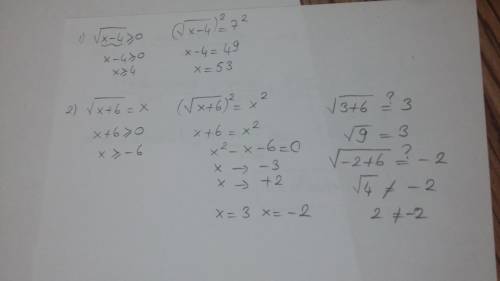 1) √x-4 ≥ 0
x-4 ≥ 0
x ≥ 4
(√x-4)² = 7²
x-4 = 49
x = 53
2) √x+6 = x
x+6 ≥ 0
x ≥ -6
(√x+6)² = x²
x+6 = x²
x² - x - 6 = 0
x → -3
x → +2
x = 3 x = -2
√3+6 ?= 3
√9 = 3
√-2+6 ?= -2
√4 ≠ -2
2 ≠ -2